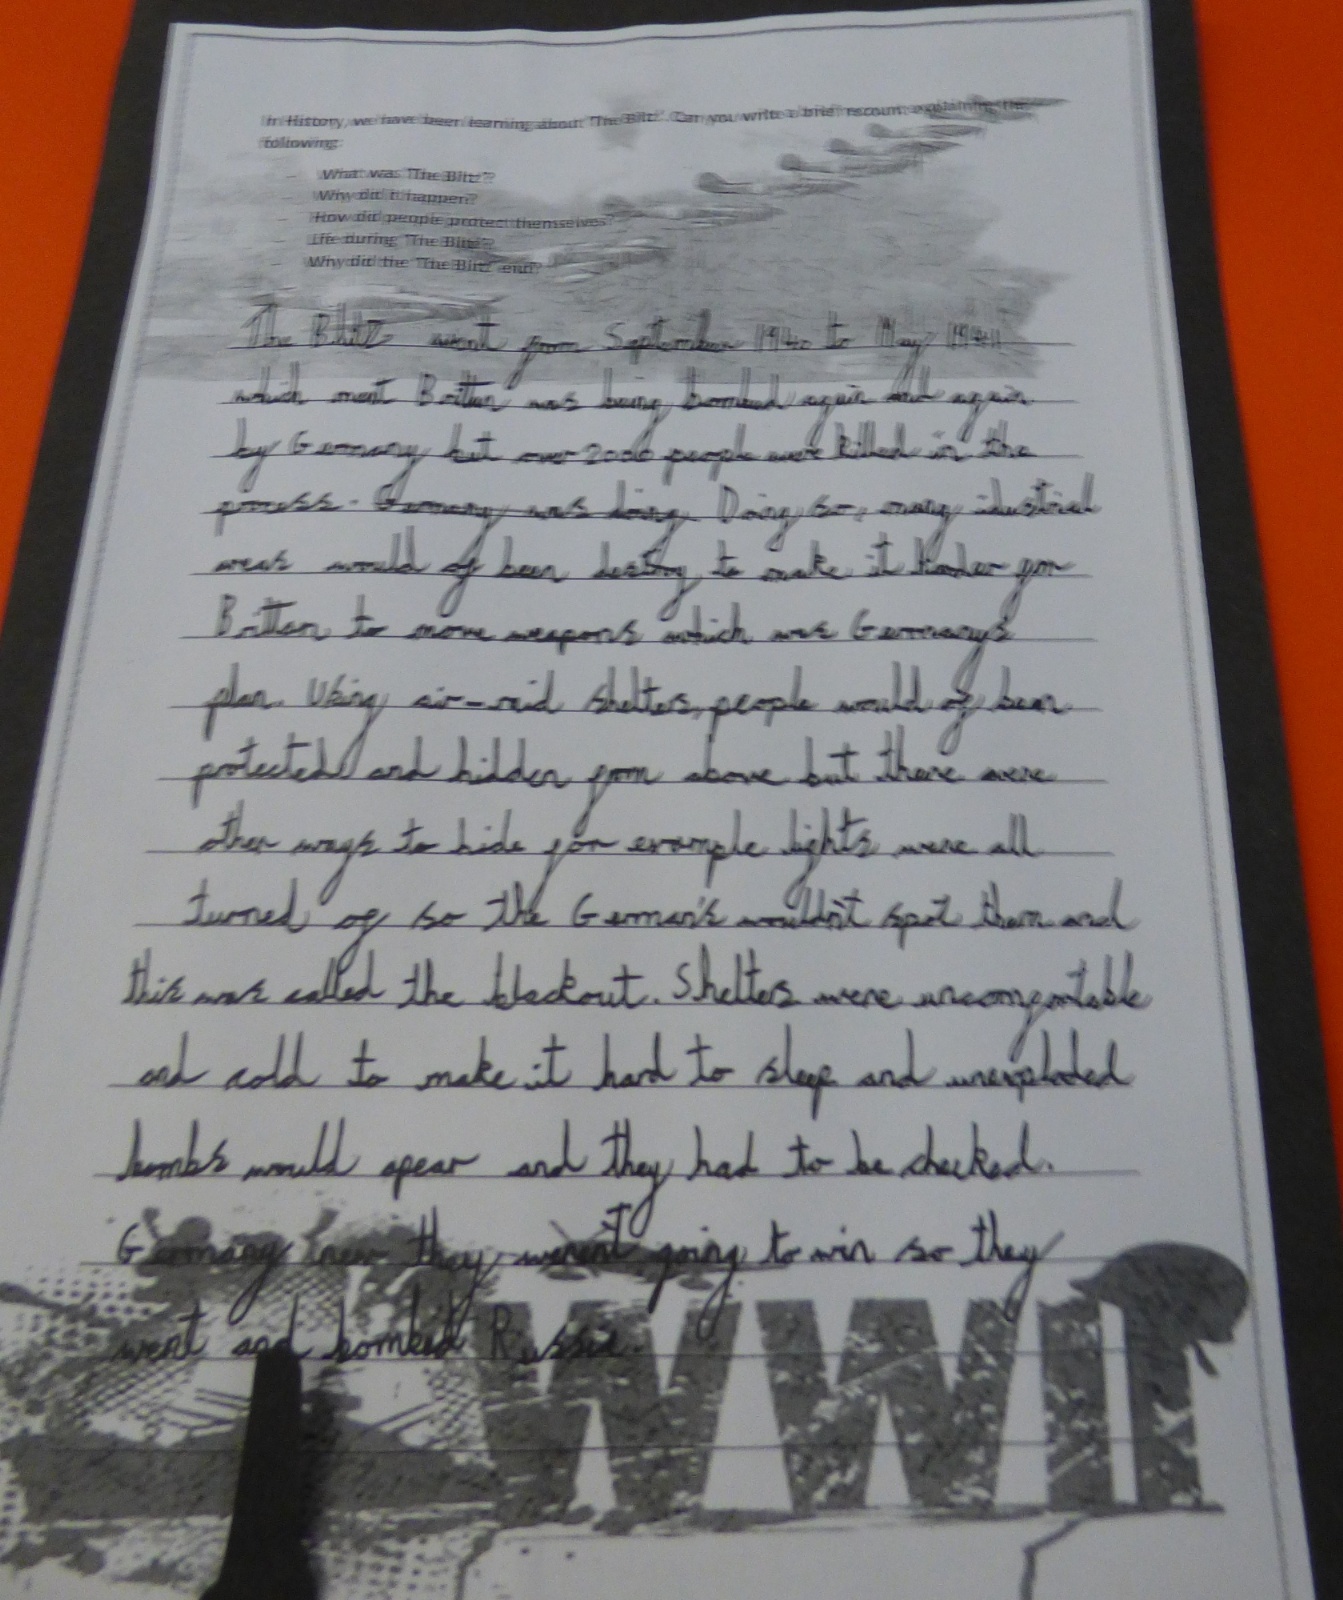 In History, we have been learning about 'The Blitz'. Can you write a brief recount explaining the
following:
- What was 'The Blitz'?
- Why did it happen?
- How did people protect themselves?
- Life during 'The Blitz'?
- Why did the 'The Blitz' end?
The Blitz went from September 1940 to May 1941
which ment Britten was being bombed again and again
by Germany but over 2000 people were killed in the
process. Germany was doing. Doing so, many idustrial
would of been destroy to make it harder for
Britten to move weapons which was Germany's
plan. Using air-raid shelters, people would of been
protected and hidden from above but there were
other ways to hide for example lights were all
turned of so the German's wouldn't spot them and
this was called the blackout. Shelters were uncomfortable
and cold to make it hard to sleep and unexploded
bombs would apear and they had to be checked.
Germany new they weren't going to win so they
went and bombed Russia.
WWII